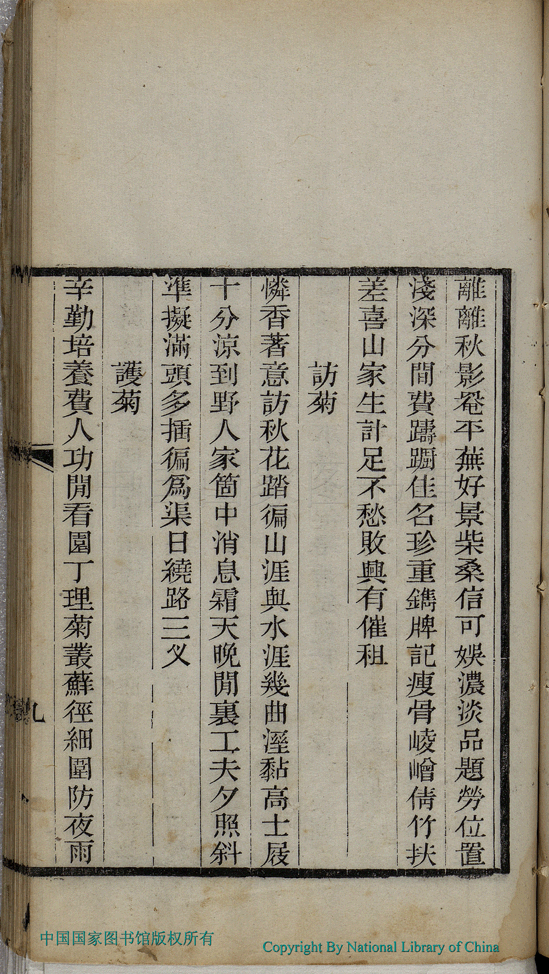 離離秋影罨平蕪好景柴桑信可娛濃淡品題勞位置
淺深分間費躊躕佳名珍重鐫牌記痩骨崚嶒倩竹扶
差喜山家生計足不愁敗興有催租
訪菊
憐香著意訪秋花踏徧山涯與水涯幾曲溼黏高士屐
十分涼到野人家箇中消息霜天晚閒裏工夫夕照斜
準擬滿頭多插徧爲渠日繞路三义
護菊
辛勤培養費人功閒看園丁理菊叢蘚徑細圍防夜雨
九
中国国家图书馆版权所有
Copyright By National Library of China